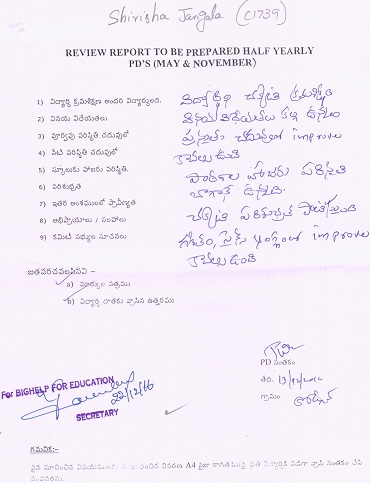 Shirisha Jangala (C1739)
REVIEW REPORT TO BE PREPARED HALF YEARLY
PD'S (MAY & NOVEMBER)
1) విద్యార్థి క్రమశిక్షణ అందరి విద్యార్థులది.
2) వినయ విధేయతలు
3) పూర్వపు పరిస్థితి చదువులో
4) నేటి పరిస్థితి చదువులో
5) స్కూలుకు హాజరు పరిస్థితి.
6) పరిశుభ్రత
7) ఇతర అంశములలో ప్రావీణ్యత
8) అభిప్రాయాలు / సలహాలు
9) కమిటీ సభ్యుల సూచనలు
విద్యార్థిని చక్కటి క్రమశిక్షణ
వినయ విధేయతలు కలిగి ఉన్నది
ప్రస్తుతం చదువులో improve
కావలసి ఉంది
పాఠశాల హాజరు పరిస్థితి
బాగానే ఉన్నది.
చక్కటి పరిశుభ్రత పాటిస్తుంది
గణితం, సైన్స్ improve
కావలసి ఉంది
జతపరచవలసినవి –
a) మార్కుల పత్రము
b) విద్యార్థి దాతకు వ్రాసిన ఉత్తరము
PD సంతకం
తేది.
గ్రామం
For BIGHELP FOR EDUCATION
22/12/16
SECRETARY
గమనిక:–
పైన సూచించిన విషయములకు వివరణ A4 సైజు కాగితముపై ప్రతి విద్యార్థికి విడిగా వ్రాసి సంతకం చేసి
పంపవలెను.